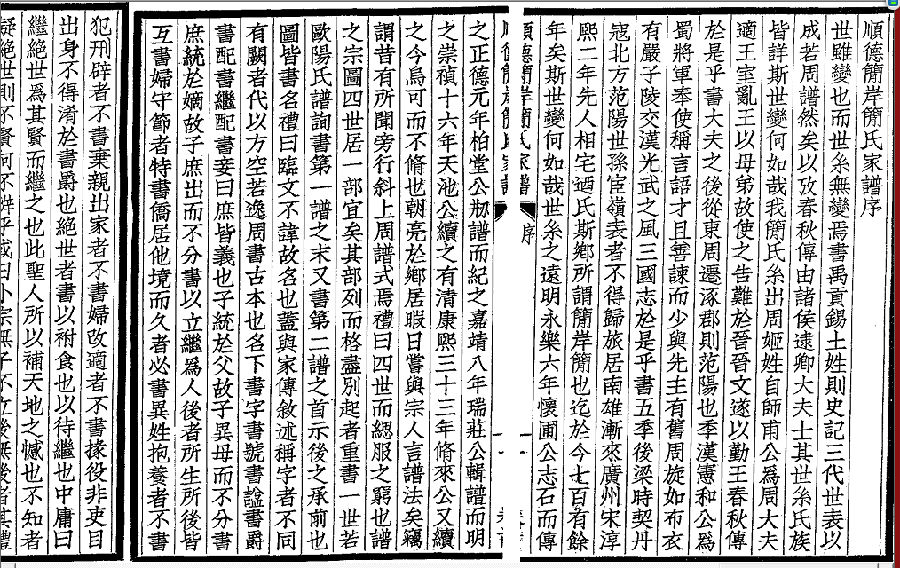 順德簡岸簡氏家譜序
世雖變也而世系無變焉書禹貢錫土姓則史記三代世表以
成若周譜然矣以攷春秋傳由諸侯逮卿大夫士其世系氏族
皆詳斯世變何如哉我簡氏系出周姬姓自師甫公為周大夫
適王室亂王以母弟故使之告難於晉晉文遂以勤王春秋傳
於是乎書大夫之後從東周遷涿郡則范陽也季漢憲和公為
蜀將軍奉使稱言語才且善諫而少與先主有舊周旋如布衣
有嚴子陵交漢光武之風三國志於是乎書五季後梁時契丹
寇北方范陽世孫宦嶺表者不得歸旅居南雄漸來廣州宋淳
熙二年先人相宅適氏斯鄉所謂簡岸簡也迄於今七百有餘
年矣斯世變何如哉世系之遠明永樂六年懷圃公志石而傳
順德簡岸簡氏家譜
序
之正德元年柏堂公刱譜而紀之嘉靖八年瑞莊公輯譜而明
之崇禎十六年天池公續之有清康熙三十三年脩來公又續
之今烏可而不脩也朝亮於鄉居暇日嘗與宗人言譜法矣竊
謂昔有所聞旁行斜上周譜式焉禮曰四世而緦服之窮也譜
之宗圖四世居一部宜矣其部列而格盡別起者重書一世若
歐陽氏譜詢書第一譜之末又書第二譜之首示後之承前也
圖皆書名禮曰臨文不諱故名也蓋與家傳敘述稱字者不同
有闕者代以方空若逸周書古本也名下書字書號書諡書爵
書配書繼配書妾曰庶皆義也子統於父故子異母而不分書
庶統於嫡故子庶出而不分書以立繼為人後者所生所後皆
互書婦守節者特書僑居他境而久者必書異姓抱養者不書
犯刑辟者不書棄親出家者不書婦改適者不書掾役非吏目
出身不得淆於書爵也絕世者書以祔食也以待繼也中庸曰
繼絕世為其賢而繼之也此聖人所以補天地之憾也不知者